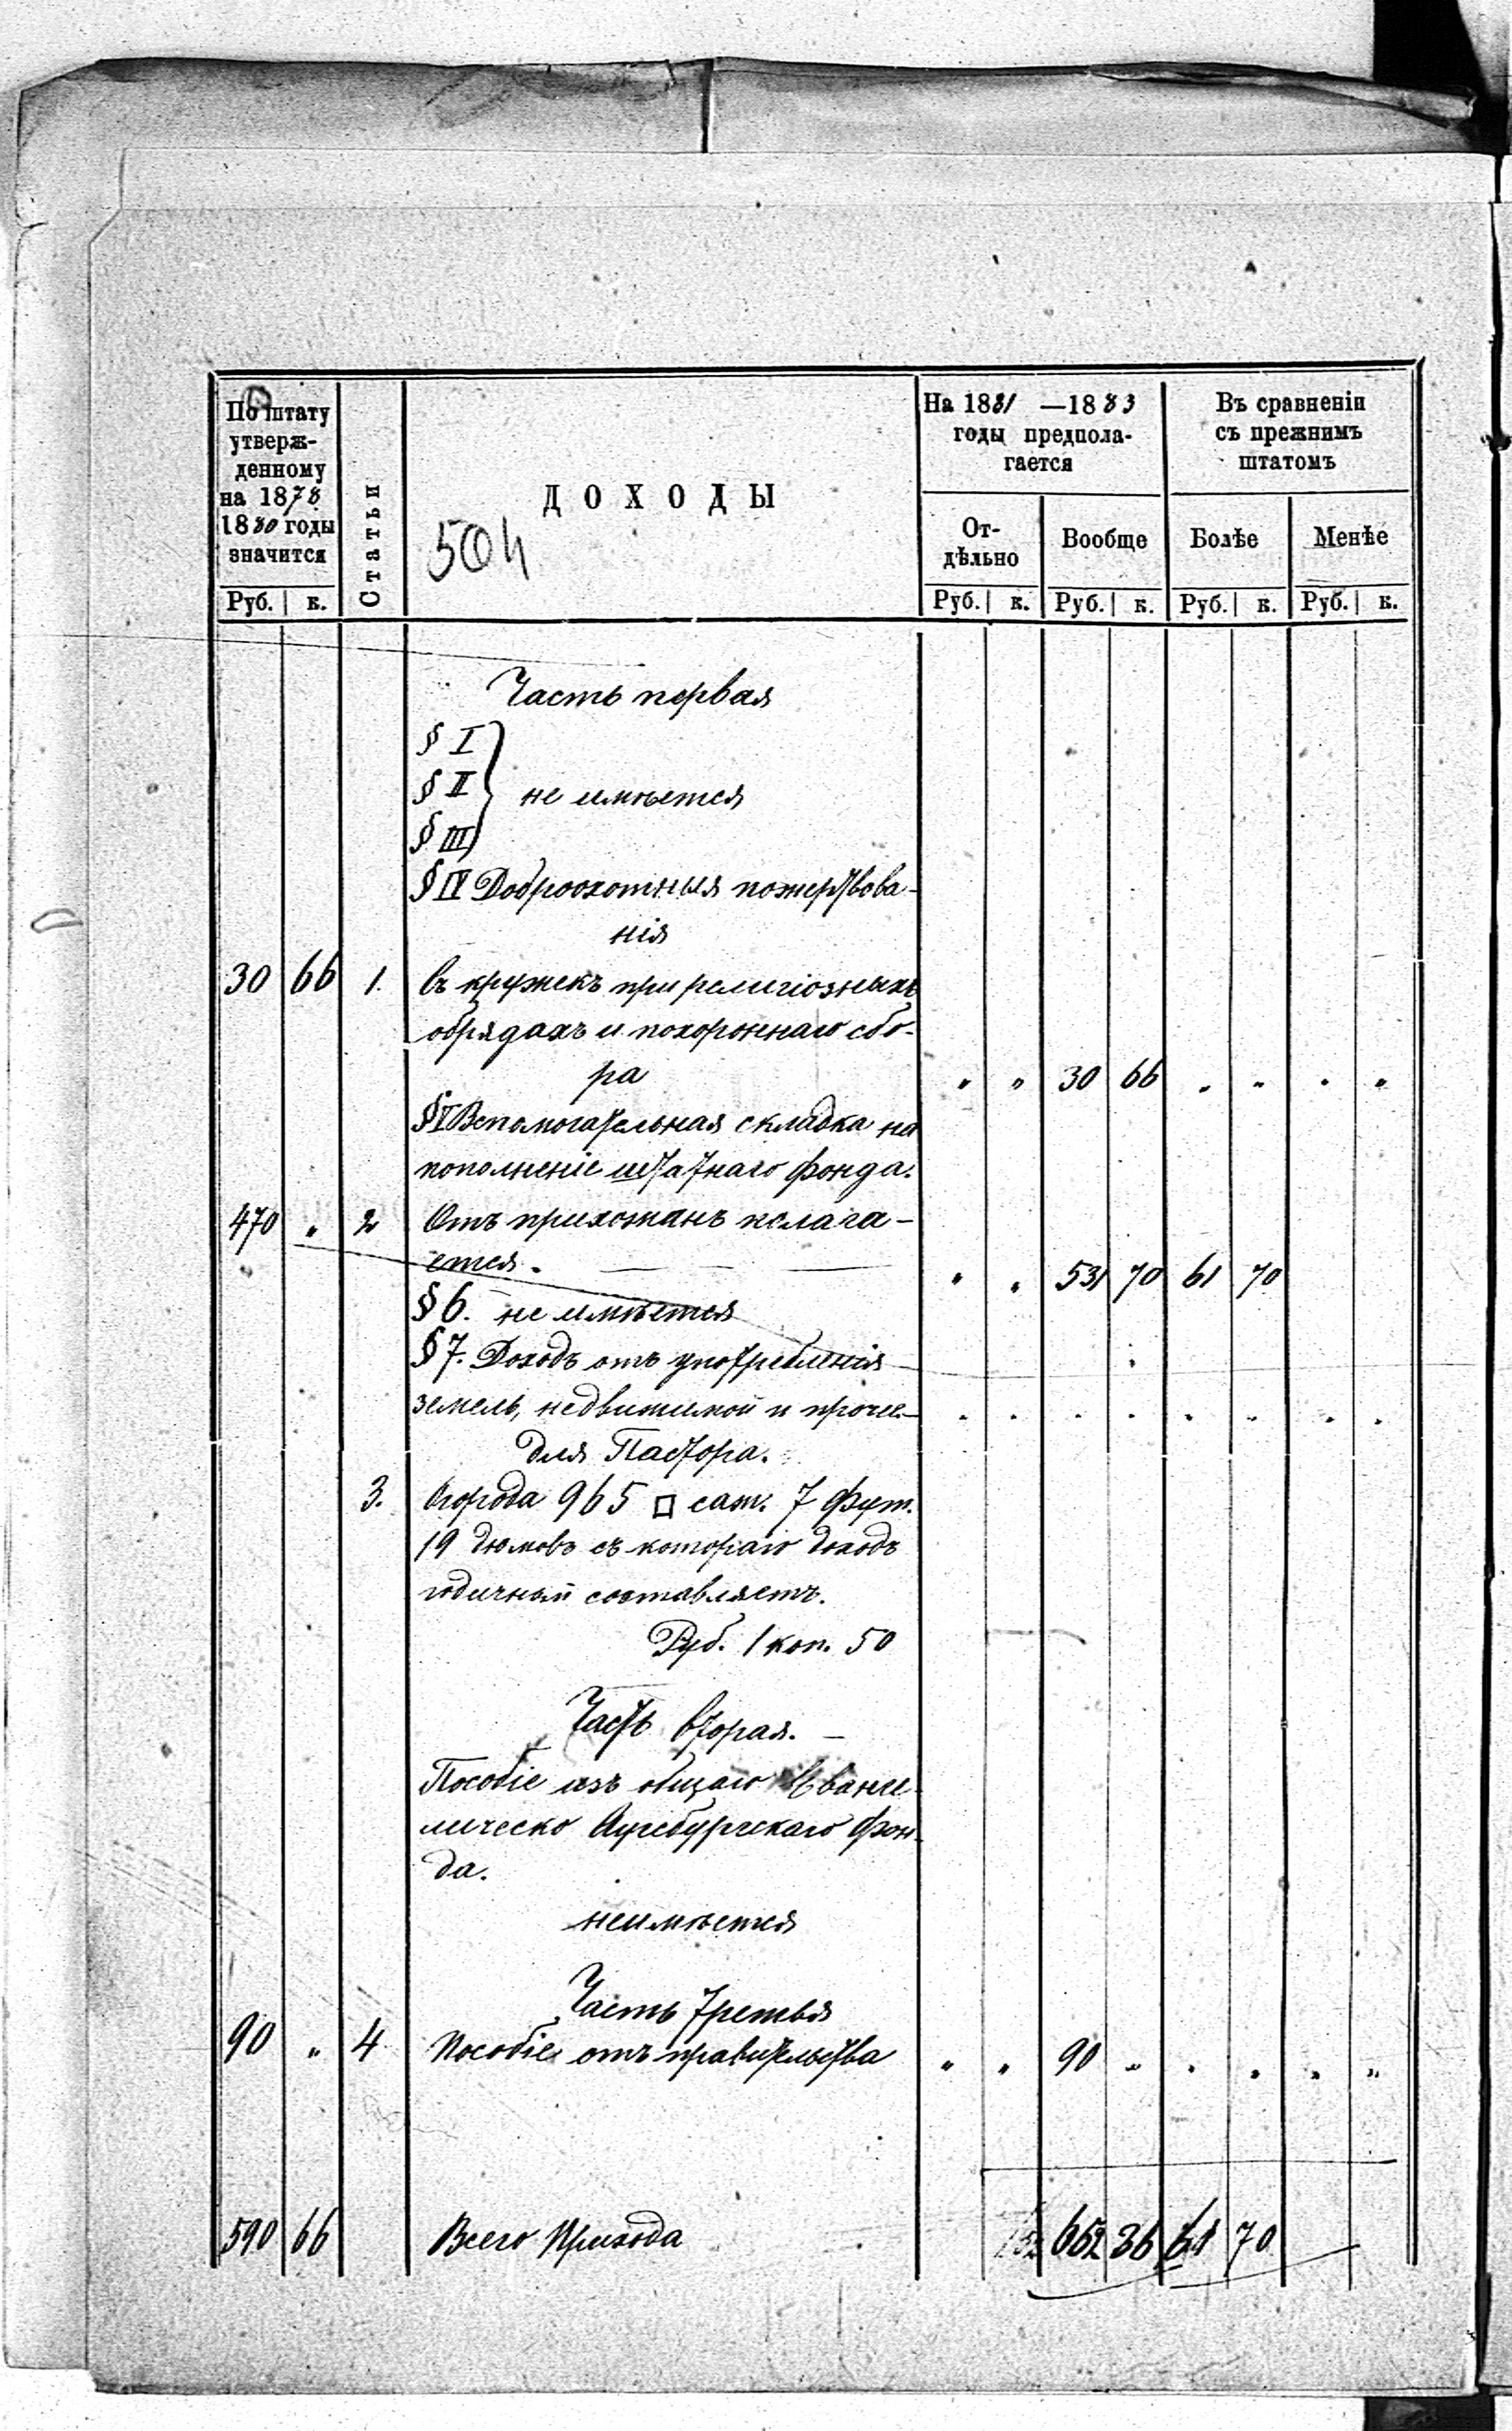 По штату
утверж-
денному
на 1878
1880 годы
значится
Руб. к.
Статьи
ДОХОДЫ
504
На 1881 —1883
годы предпола-
гается
От-
дѣльно
Руб. к.
Вообще
Руб. к.
Въ сравненіи
съ прежнимъ
штатомъ
Болѣе
Руб. к.
Менѣе
Руб. к.
Часть первая
§ I
§ II не имѣется
§ III
§ IV Доброохотныя пожертвова-
нія
30 66 1. въ кружекъ при религіозныхъ
обрядахъ и похороннаго сбо-
ра " " 30 66 " " " "
§ V Вспомогательная складка на
пополненіе штатнаго фонда.
470 " 2 Отъ прихожанъ пслага-
ется. — — " " 531 70 61 70
§ 6. не имѣется
§ 7. Доходъ отъ употребленія
земель, недвижимой и проче.
для Пастора.
3. Огорода 965 □ саж. 7 фут.
19 дюмовъ съ котораго доходъ
годичный составляетъ.
Руб. 1 коп. 50
Часть вторая. —
Пособіе изъ общаго Еванге-
лическо Аугсбургскаго Фон-
да.
неимѣется
Часть третья
90 " 4 Пособіе отъ правительства " " 90 " " " " "
590 66 Всего Прихода 652 36 61 70